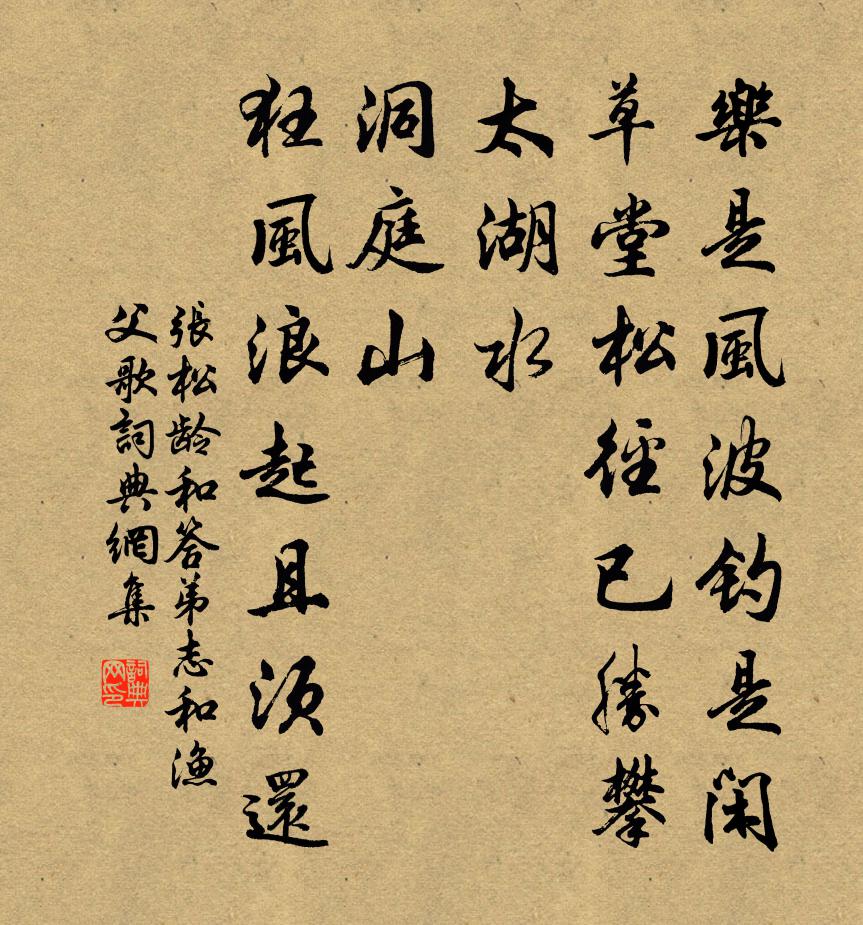 樂是風波釣是閑
草堂松徑已勝攀
太湖水
洞庭山
狂風浪起且須還
張松齡和答弟志和漁
父歌詞典網集
詞典
网印